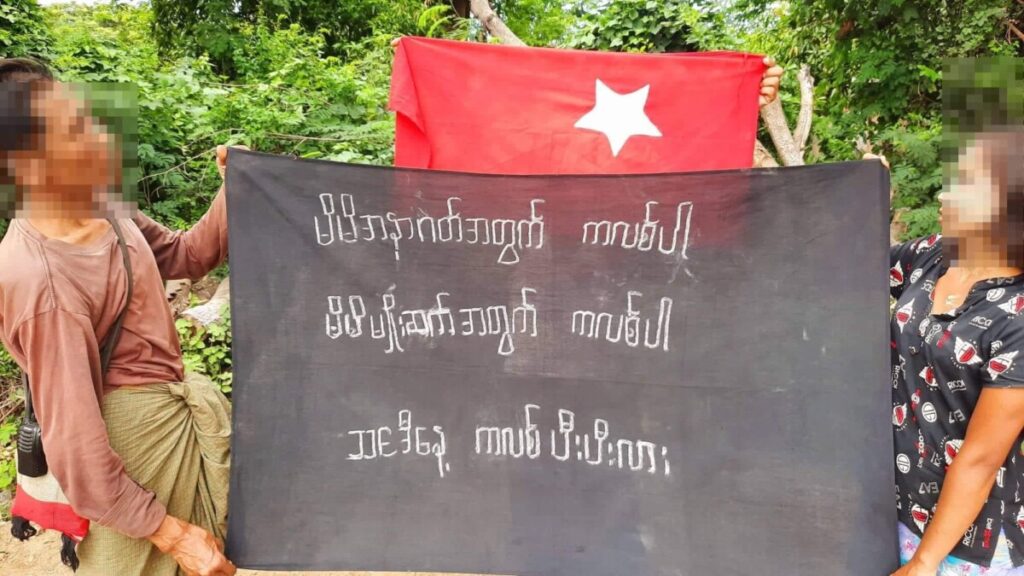 မိမိအနာဂတ်အတွက် ကလစ်ပါ
မိမိမျိုးဆက်အတွက် ကလစ်ပါ
ဒီနေ့ ကလစ် ပီးပီးလား
EA7